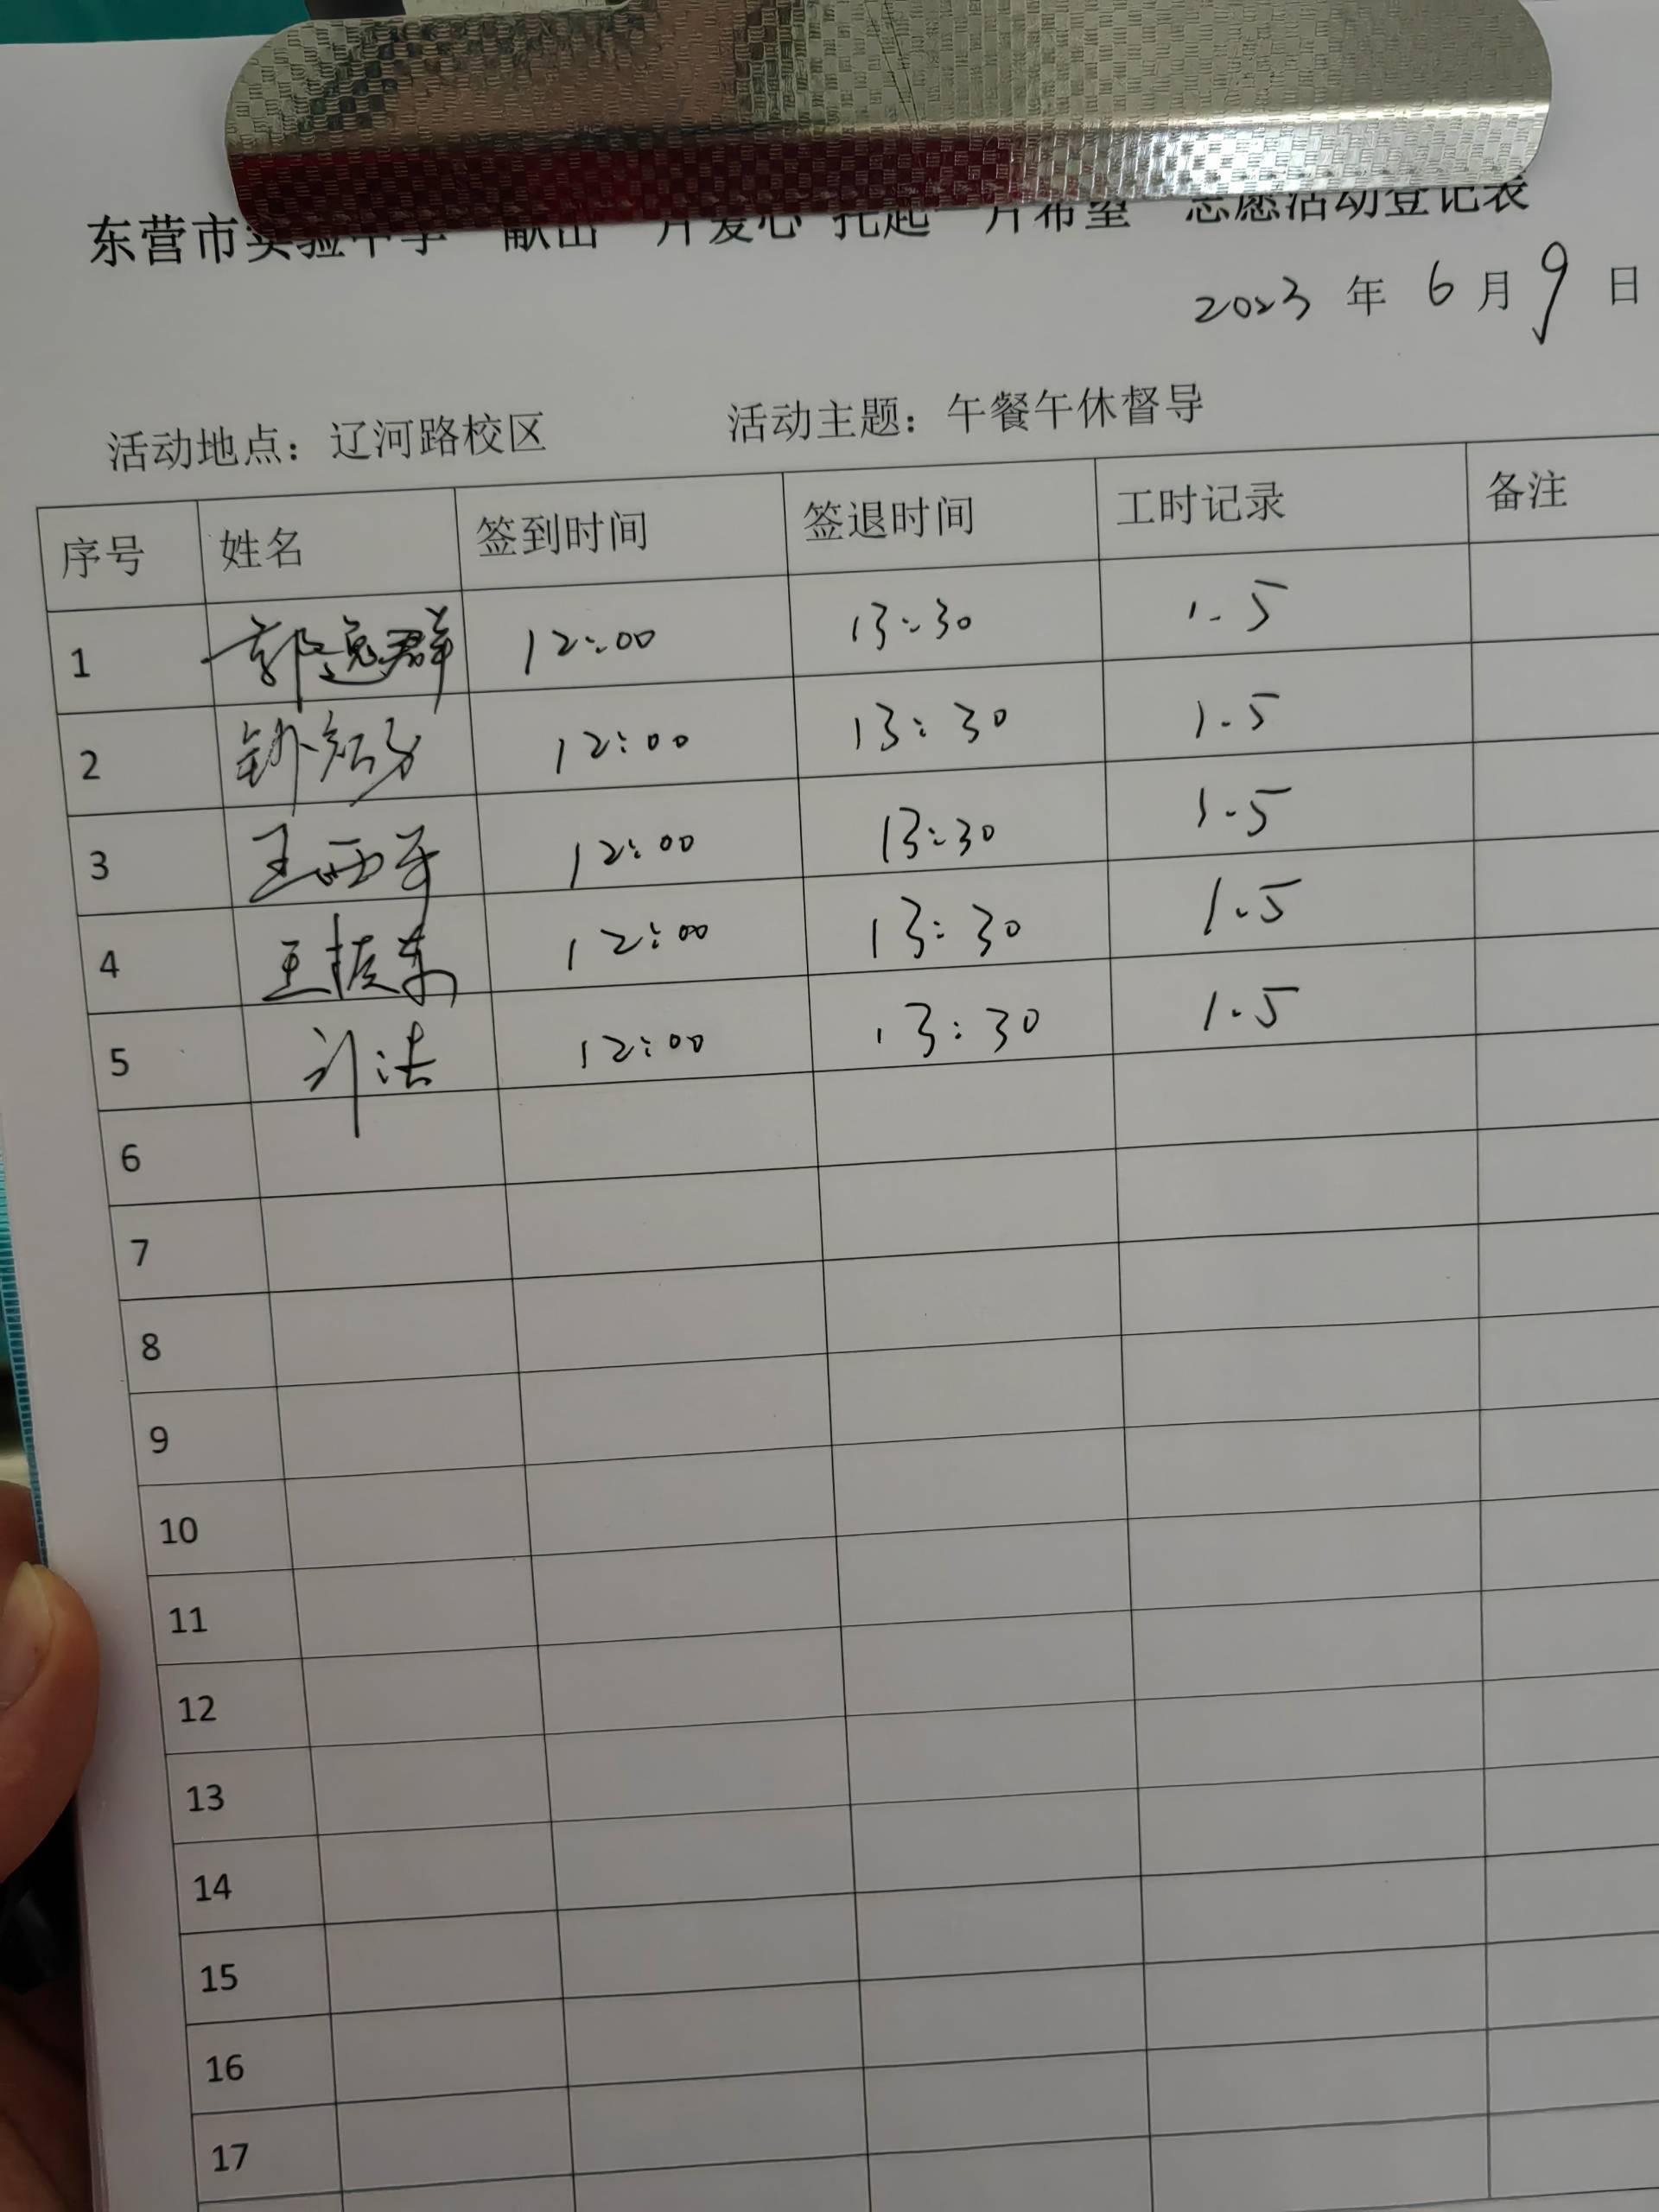 东营市实验中学 献出一片爱心 托起一片希望 志愿活动登记表
2023 年 6 月 9 日
活动地点：辽河路校区 活动主题：午餐午休督导
序号 姓名 签到时间 签退时间 工时记录 备注
1 郭逸群 12:00 13:30 1.5
2 12:00 13:30 1.5
3 12:00 13:30 1.5
4 王振东 12:00 13:30 1.5
5 12:00 13:30 1.5
6
7
8
9
10
11
12
13
14
15
16
17